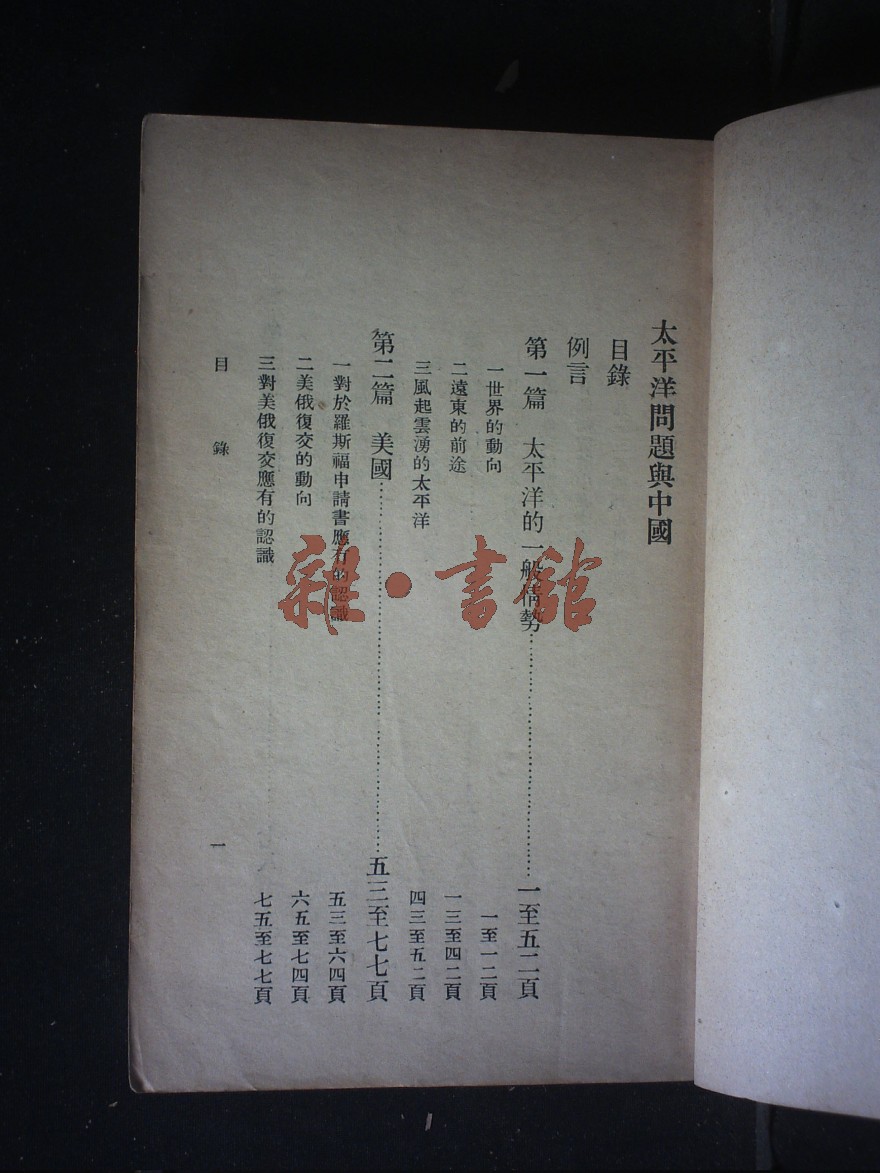 太平洋問題與中國
目錄
例言
第一篇 太平洋的一般情勢……一至五二頁
一世界的動向 一至一二頁
二遠東的前途 一三至四二頁
三風起雲湧的太平洋 四三至五二頁
第二篇 美國……五三至七七頁
一對於羅斯福申請書應有的認識 五三至六四頁
二美俄復交的動向 六五至七四頁
三對美俄復交應有的認識 七五至七七頁
目錄 一
雜·書館